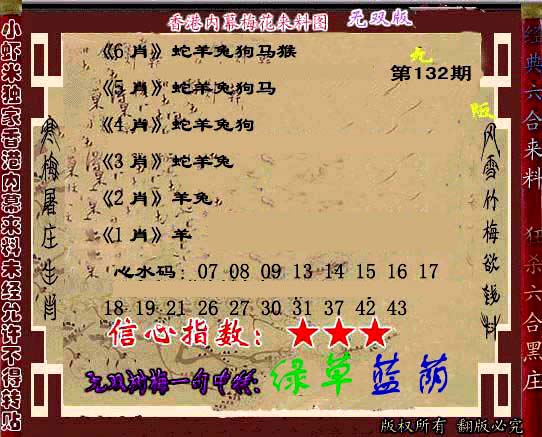 香港内幕梅花来料图 无双版
《6 肖》蛇羊兔狗马猴
无
第132期
《5 肖》蛇羊兔狗马
《4 肖》蛇羊兔狗
《3 肖》蛇羊兔
《2 肖》羊兔
《1 肖》羊
心水码：07 08 09 13 14 15 16 17
18 19 21 26 27 30 31 37 42 43
信心指数：★★★
绿草蓝荫
版权所有 翻版必究
小虾米独家香港内幕来料未经允许不得转贴
寒梅屠庄生肖
风雪竹梅欲钱料
经典六合来料 狂杀六合黑庄